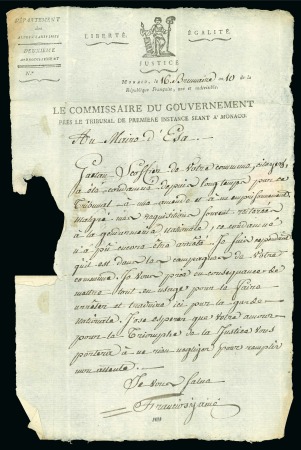 DÉPARTEMENT
DES
ALPES-MARITIMES
DEUXIÈME
ARRONDISSEMENT
N.º
LIBERTÉ. ÉGALITÉ.
JUSTICE
Monaco, le 16 Brumaire an 10 de la
République Française, une et indivisible.
LE COMMISSAIRE DU GOUVERNEMENT
PRÈS LE TRIBUNAL DE PREMIÈRE INSTANCE SÉANT A MONACO.
Au Maire d'Esa
de Votre commune, citoyen,
a été condamné depuis longtemps par ce
Tribunal à une amende et à un emprisonnement
malgré mes requisitions souvent
à la gendarmerie nationale, ce condamné
n'a pû encore être arrêté. Je suis
qu'il est dans la campagne de Votre
commune. Je Vous prie en conséquence de
mettre tout en usage pour le faire
arrêter et traduire ici par la garde
nationale. J'ose esperer que votre amour
pour le Triomphe de la Justice Vous
portera à ne rien negliger pour remplir
mon attente.
Je vous Salue